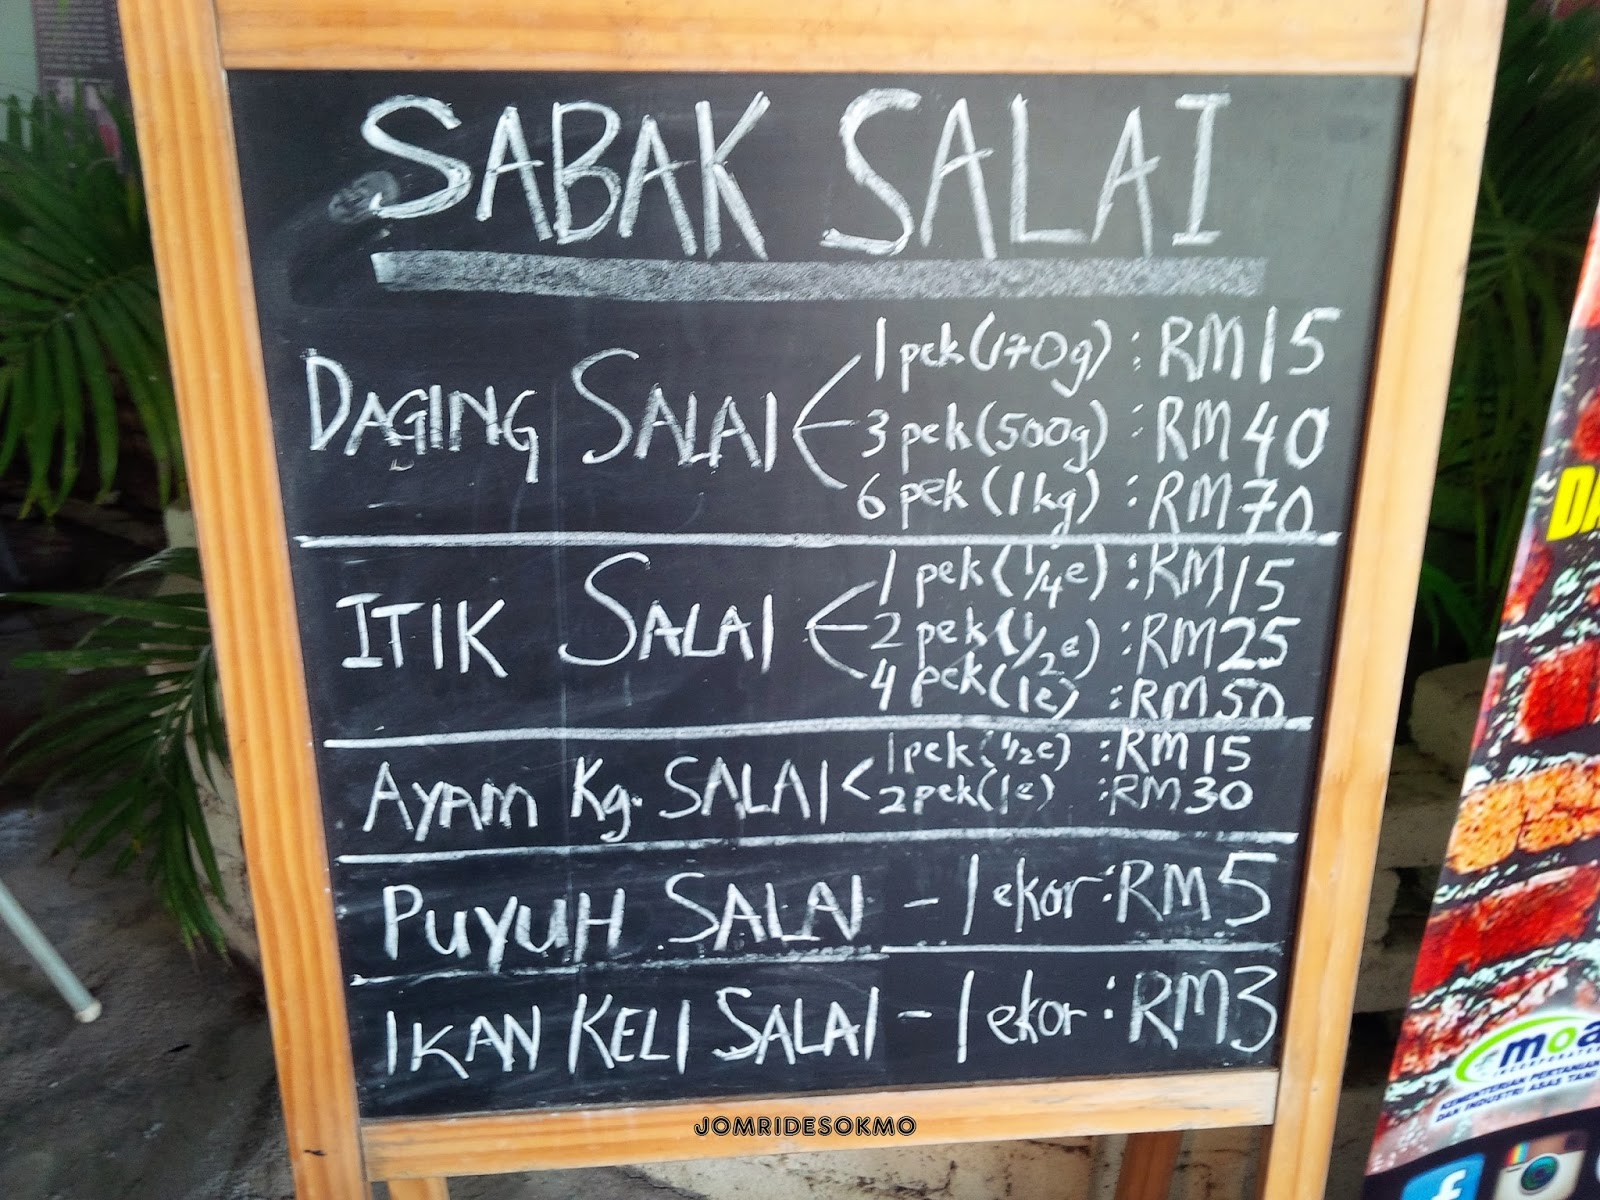 SABAK SALAI
DAGING SALAI
1 pek (170g) : RM 15
3 pek (500g) : RM 40
6 pek (1kg) : RM 70
ITIK SALAI
1 pek (1/4e) : RM 15
2 pek (1/2e) : RM 25
4 pek (1e) : RM 50
AYAM Kg. SALAI
1 pek (1/2e) : RM 15
2 pek (1e) : RM 30
PUYUH SALAI - 1 ekor : RM 5
IKAN KELI SALAI - 1 ekor : RM 3
JOMRIDESOKMO
moa
KEMENTERIAN PERTANIAN
DAN INDUSTRI ASAS TANI